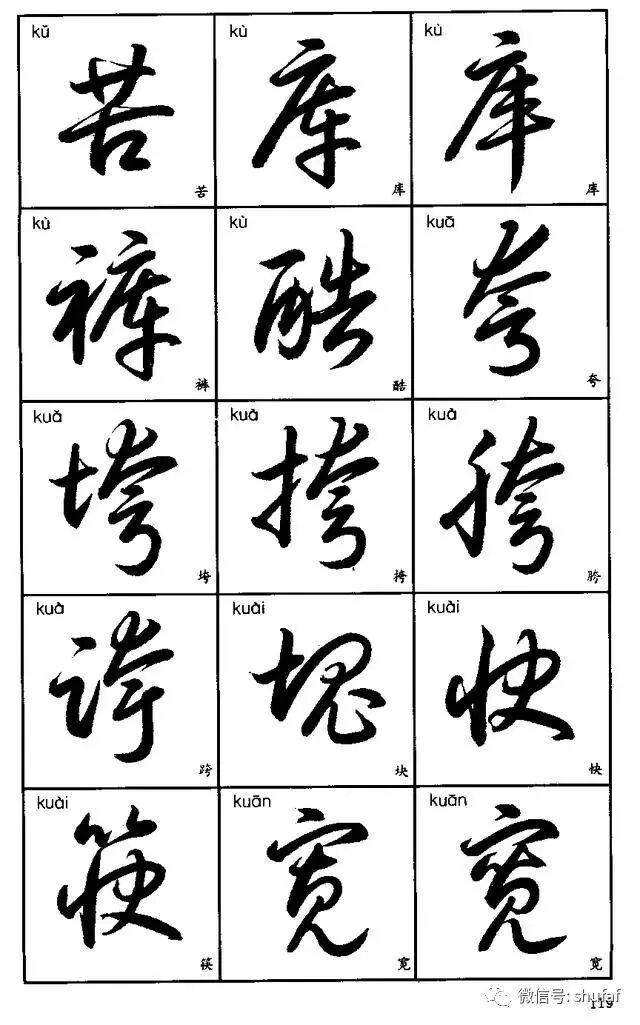 kǔ kù kù
苦 库 库
苦 库 库
kù kù kuā
裤 酷 夸
裤 酷 夸
kuǎ kuà kuà
垮 挎 胯
垮 挎 胯
kuà kuài kuài
跨 块 快
跨 块 快
kuài kuān kuān
筷 宽 宽
筷 宽 宽
微信号: shufaf
119